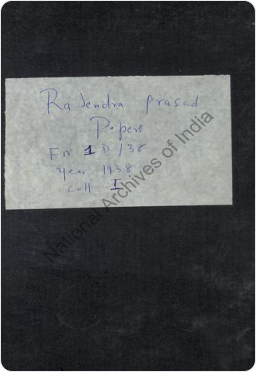 Rajendra Prasad
Papers
Fir 1 D/38
Year 1938
coll I
National Archives of India